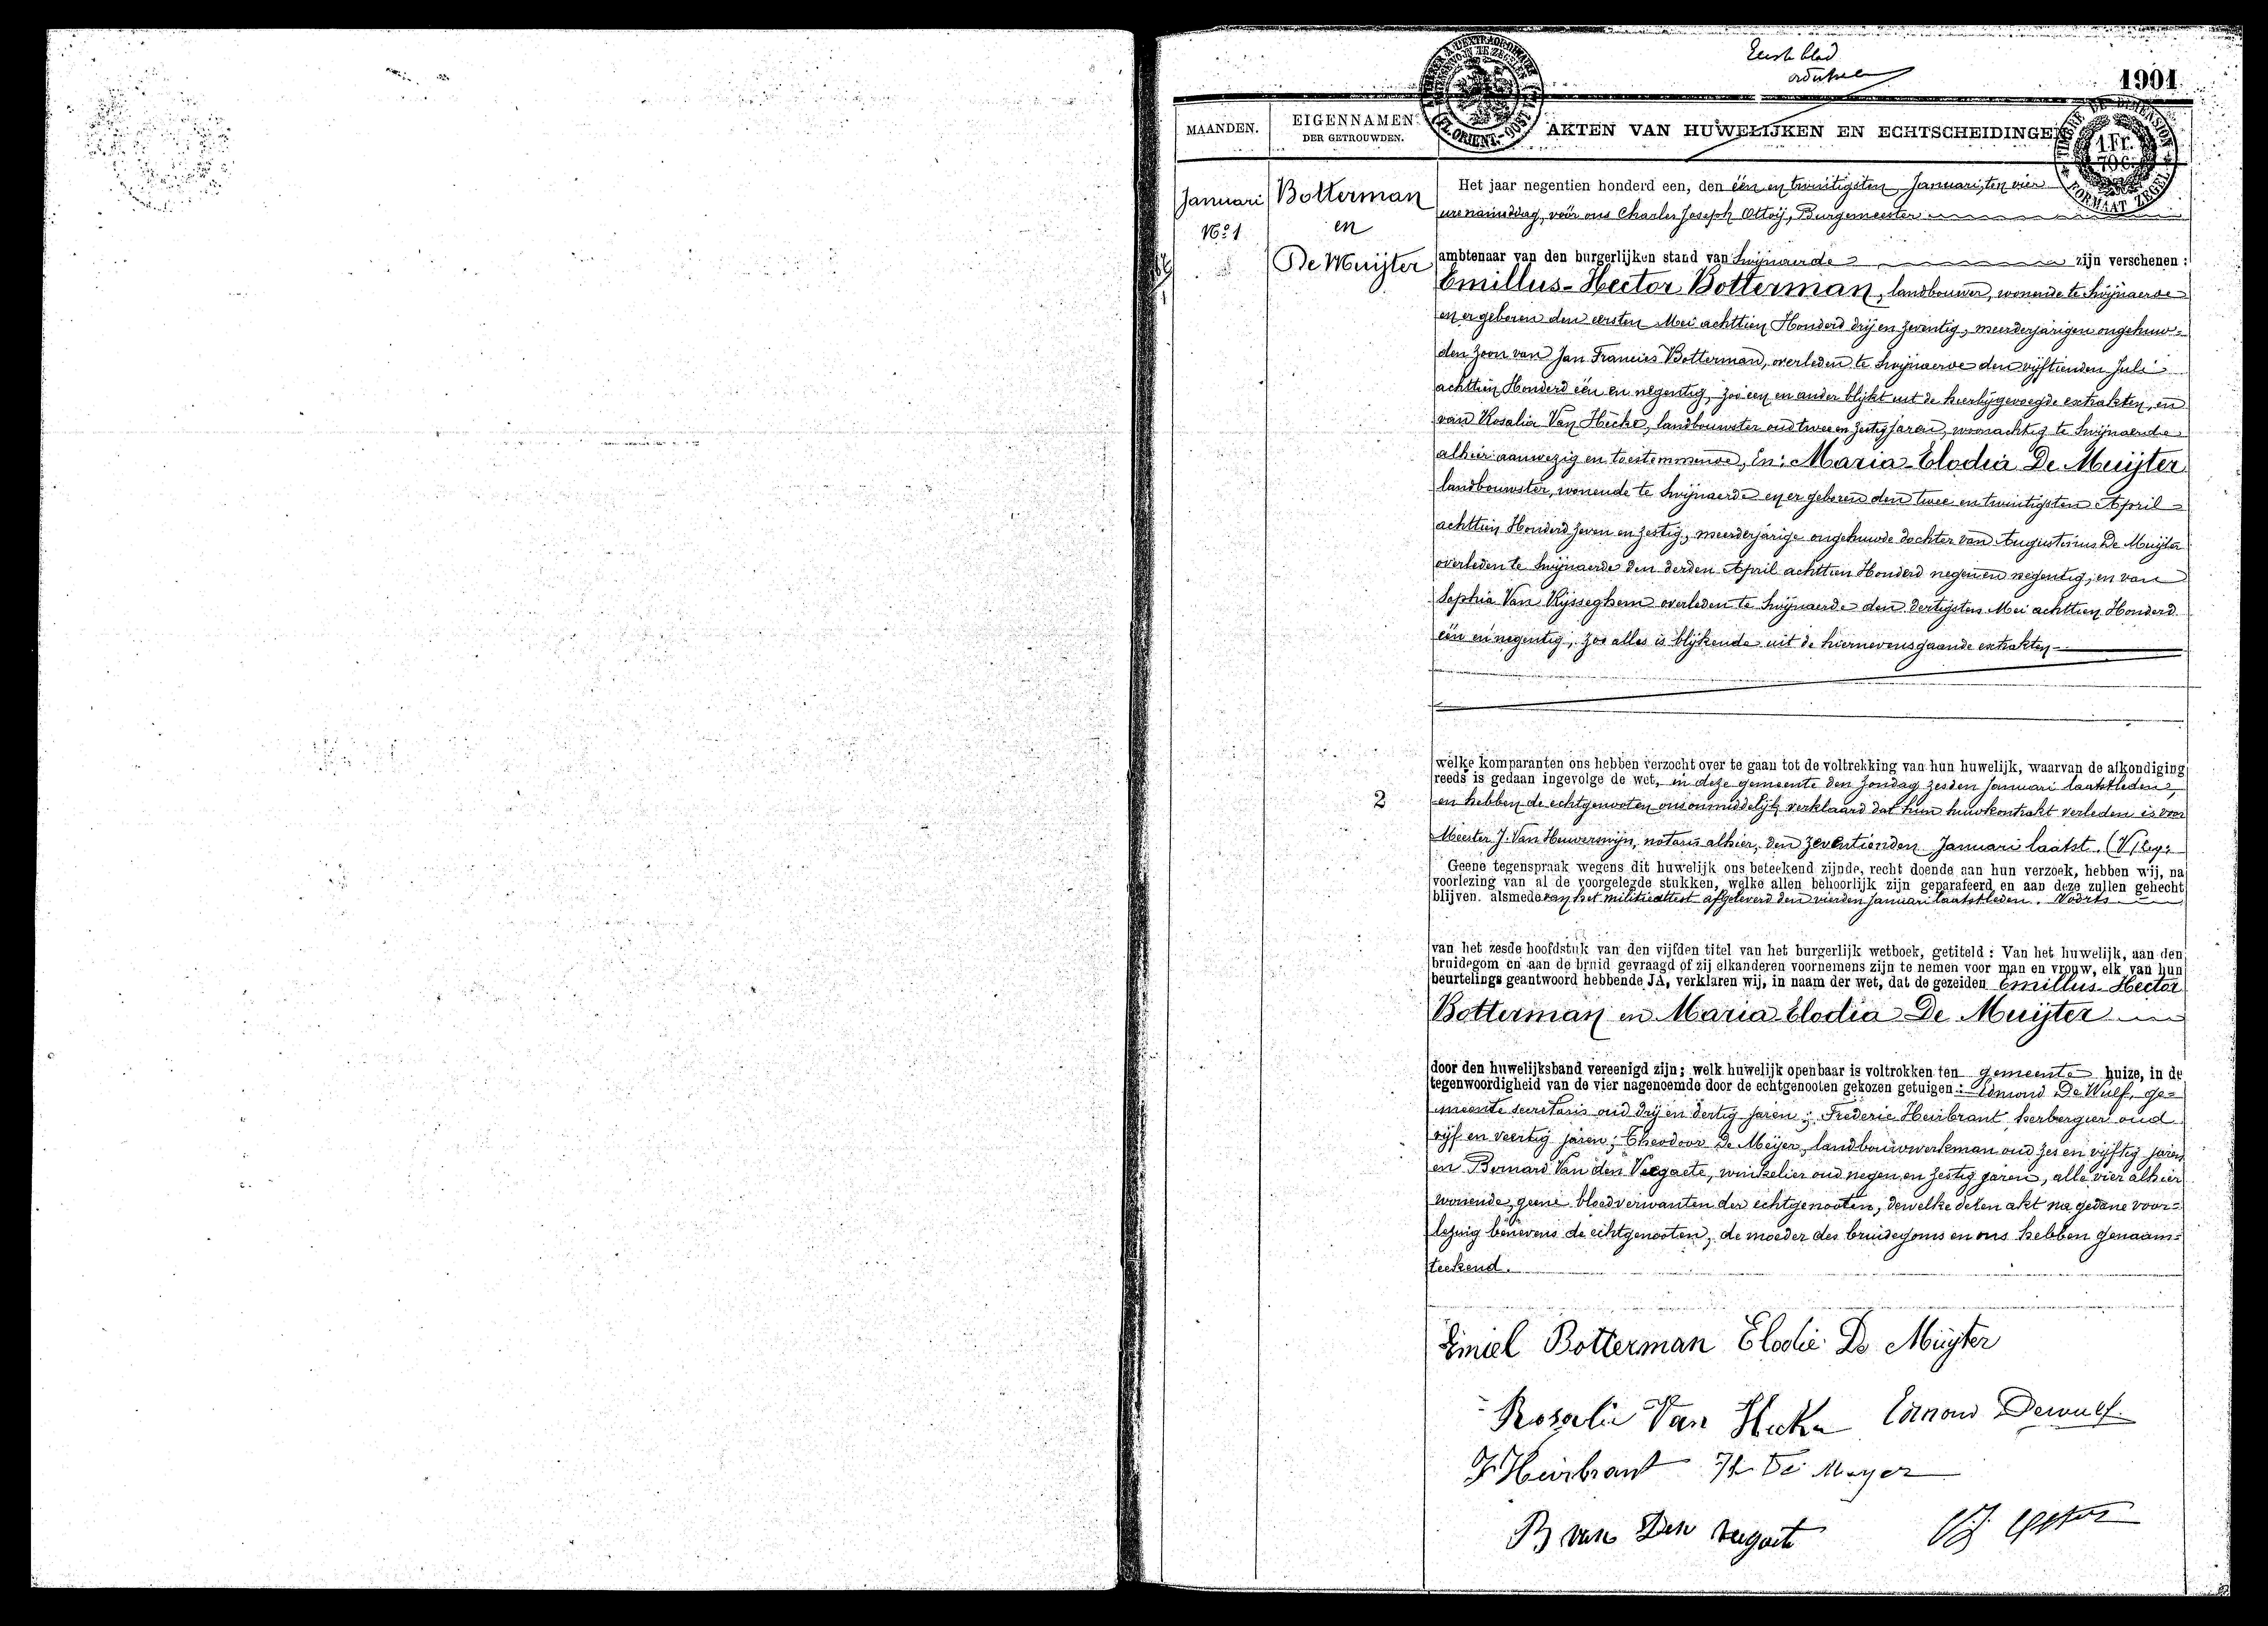 Eerste blad
1901
MAANDEN.
EIGENNAMEN
DER GETROUWDEN.
AKTEN VAN HUWELIJKEN EN ECHTSCHEIDINGEN
FL. ORIENT.-OOST VL.
TIMBRE DE DIMENSION
1 Fr.
FORMAAT ZEGEL
Januari
No 1
Botterman
en
De Muijter
Het jaar negentien honderd een, den één en twintigsten Januari, ten vier
ure namiddag, vóór ons Charles Joseph Ottoÿ, Burgemeester
ambtenaar van den burgerlijken stand van Swijnaerde zijn verschenen :
Emillus-Hector Botterman, landbouwer, wonende te Swijnaerde
en er geboren den eersten Mei achttien Honderd drij en zeventig, meerderjarigen ongehuw-
den zoon van Jan Francies Botterman, overleden te Swijnaerde den vijftienden Juli
achttien Honderd één en negentig, zoo een en ander blijkt uit de hierbijgevoegde extrakten, en
van Rosalia Van Hecke, landbouwster oud twee en zestig jaren, woonachtig te Swijnaerde
alhier aanwezig en toestemmende, En: Maria-Elodia De Muijter
landbouwster, wonende te Swijnaerde en er geboren den twee en twintigsten April
achttien Honderd zeven en zestig, meerderjarige ongehuwde dochter van Augustinus De Muijter
overleden te Swijnaerde den derden April achttien Honderd negen en negentig, en van
Sophia Van Rijsseghem overleden te Swijnaerde den dertigsten Mei achttien Honderd
één en negentig, zoo alles is blijkende uit de hiernevensgaande extrakten
welke komparanten ons hebben verzocht over te gaan tot de voltrekking van hun huwelijk, waarvan de afkondiging
reeds is gedaan ingevolge de wet, in deze gemeente den Zondag zesden Januari laatstleden,
2
en hebben de echtgenooten ons onmiddelijk verklaard dat hun huwkontrakt verleden is voor
Meester J. Van Heuverswijn, notaris alhier, den zeventienden Januari laatst.
Geene tegenspraak wegens dit huwelijk ons beteekend zijnde, recht doende aan hun verzoek, hebben wij, na
voorlezing van al de voorgelegde stukken, welke allen behoorlijk zijn geparafeerd en aan deze zullen gehecht
blijven. alsmede van het militieattest afgeleverd den vierden Januari laatstleden. Voorts
van het zesde hoofdstuk van den vijfden titel van het burgerlijk wetboek, getiteld : Van het huwelijk, aan den
bruidegom en aan de bruid gevraagd of zij elkanderen voornemens zijn te nemen voor man en vrouw, elk van hun
beurtelings geantwoord hebbende JA, verklaren wij, in naam der wet, dat de gezeiden Emillus-Hector
Botterman en Maria Elodia De Muijter
door den huwelijksband vereenigd zijn; welk huwelijk openbaar is voltrokken ten gemeente huize, in de
tegenwoordigheid van de vier nagenoemde door de echtgenooten gekozen getuigen : Edmond De Wulf, ge-
meente secretaris oud drij en dertig jaren; Frederic Heirbrant herbergier oud
vijf en veertig jaren; Theodoor De Meijer, landbouwwerkman oud zes en vijftig jaren
en Bernard Van den Veegaete, winkelier oud negen en zestig jaren, alle vier alhier
wonende, geene bloedverwanten der echtgenooten, dewelke dezen akt na gedane voor-
lezing benevens de echtgenooten, de moeder des bruidegoms en ons hebben genaam-
teekend.
Emiel Botterman Elodie De Muijter
Rosalie Van Hecke Edmond Dewulf
F Heirbrant Th De Meyer
B van Den veegaete